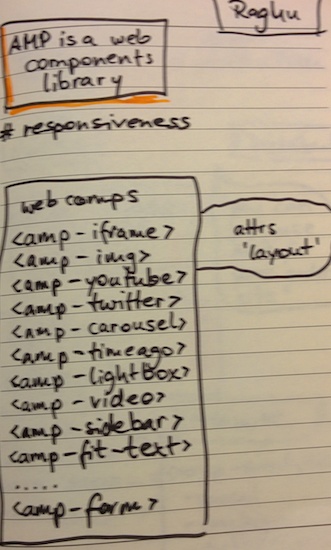 Raghu
AMP is a web
components
library
# responsiveness
web comps
<amp-iframe>
<amp-img>
<amp-youtube>
<amp-twitter>
<amp-carousel>
<amp-timeago>
<amp-lightbox>
<amp-video>
<amp-sidebar>
<amp-fit-text>
.....
<amp-form>
attrs
'layout'